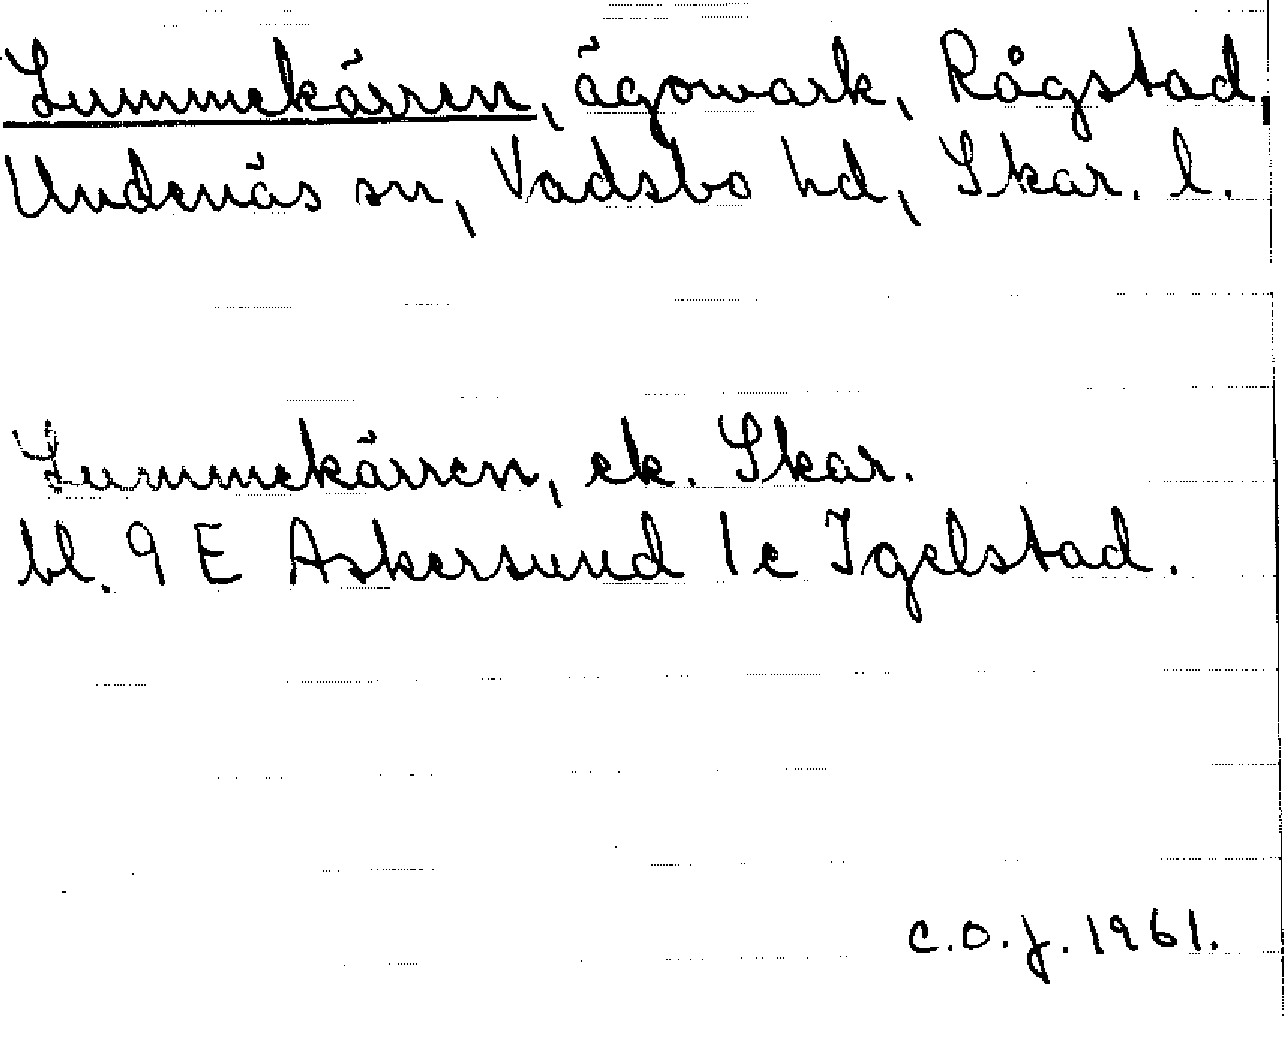 Lummekärren, ägomark, Rågstad,
Undenäs sn, Vadsbo hd, Skar. l.
Lummekärren, ek. Skar.
bl. 9 E Askersund 1c Igelstad.
C.O.J. 1961.